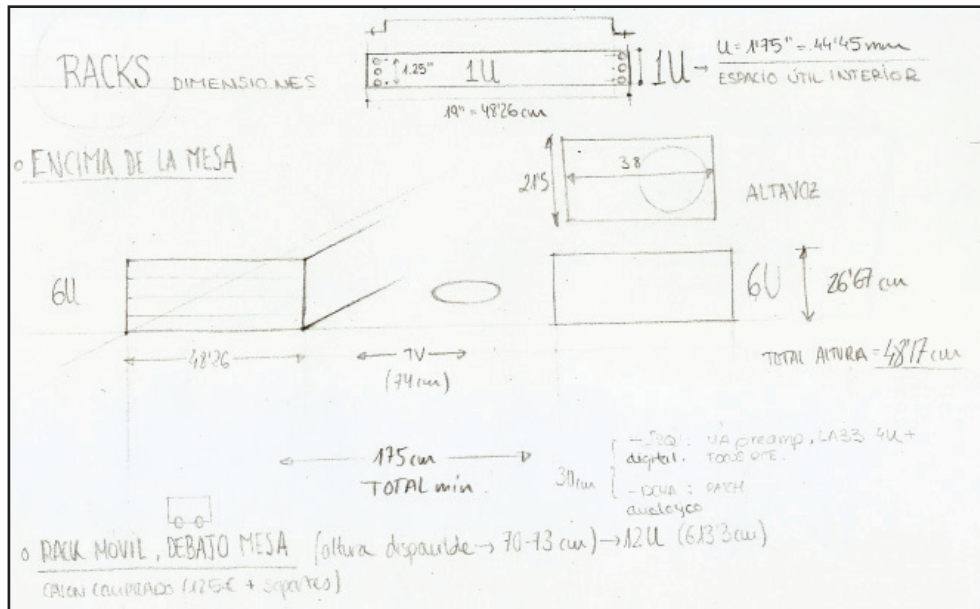 RACKS DIMENSIONES
1.25"
1U
1U → U = 1'75" = 44'45mm
ESPACIO ÚTIL INTERIOR
19" = 48'26cm
ENCIMA DE LA MESA
21'5
38
ALTAVOZ
6U
6U
26'67 cm
48'26
TV
(74cm)
TOTAL ALTURA = 48'17 cm
175cm
TOTAL min.
30cm
- IZQ: UA preamp, LA33 4U +
digital.
- DCHA: PATCH
analogyco
RACK MÓVIL, DEBAJO MESA (altura disponible → 70-73 cm) → 12U (61'33cm)
CAJÓN COMPRADO (125€ + soportes)